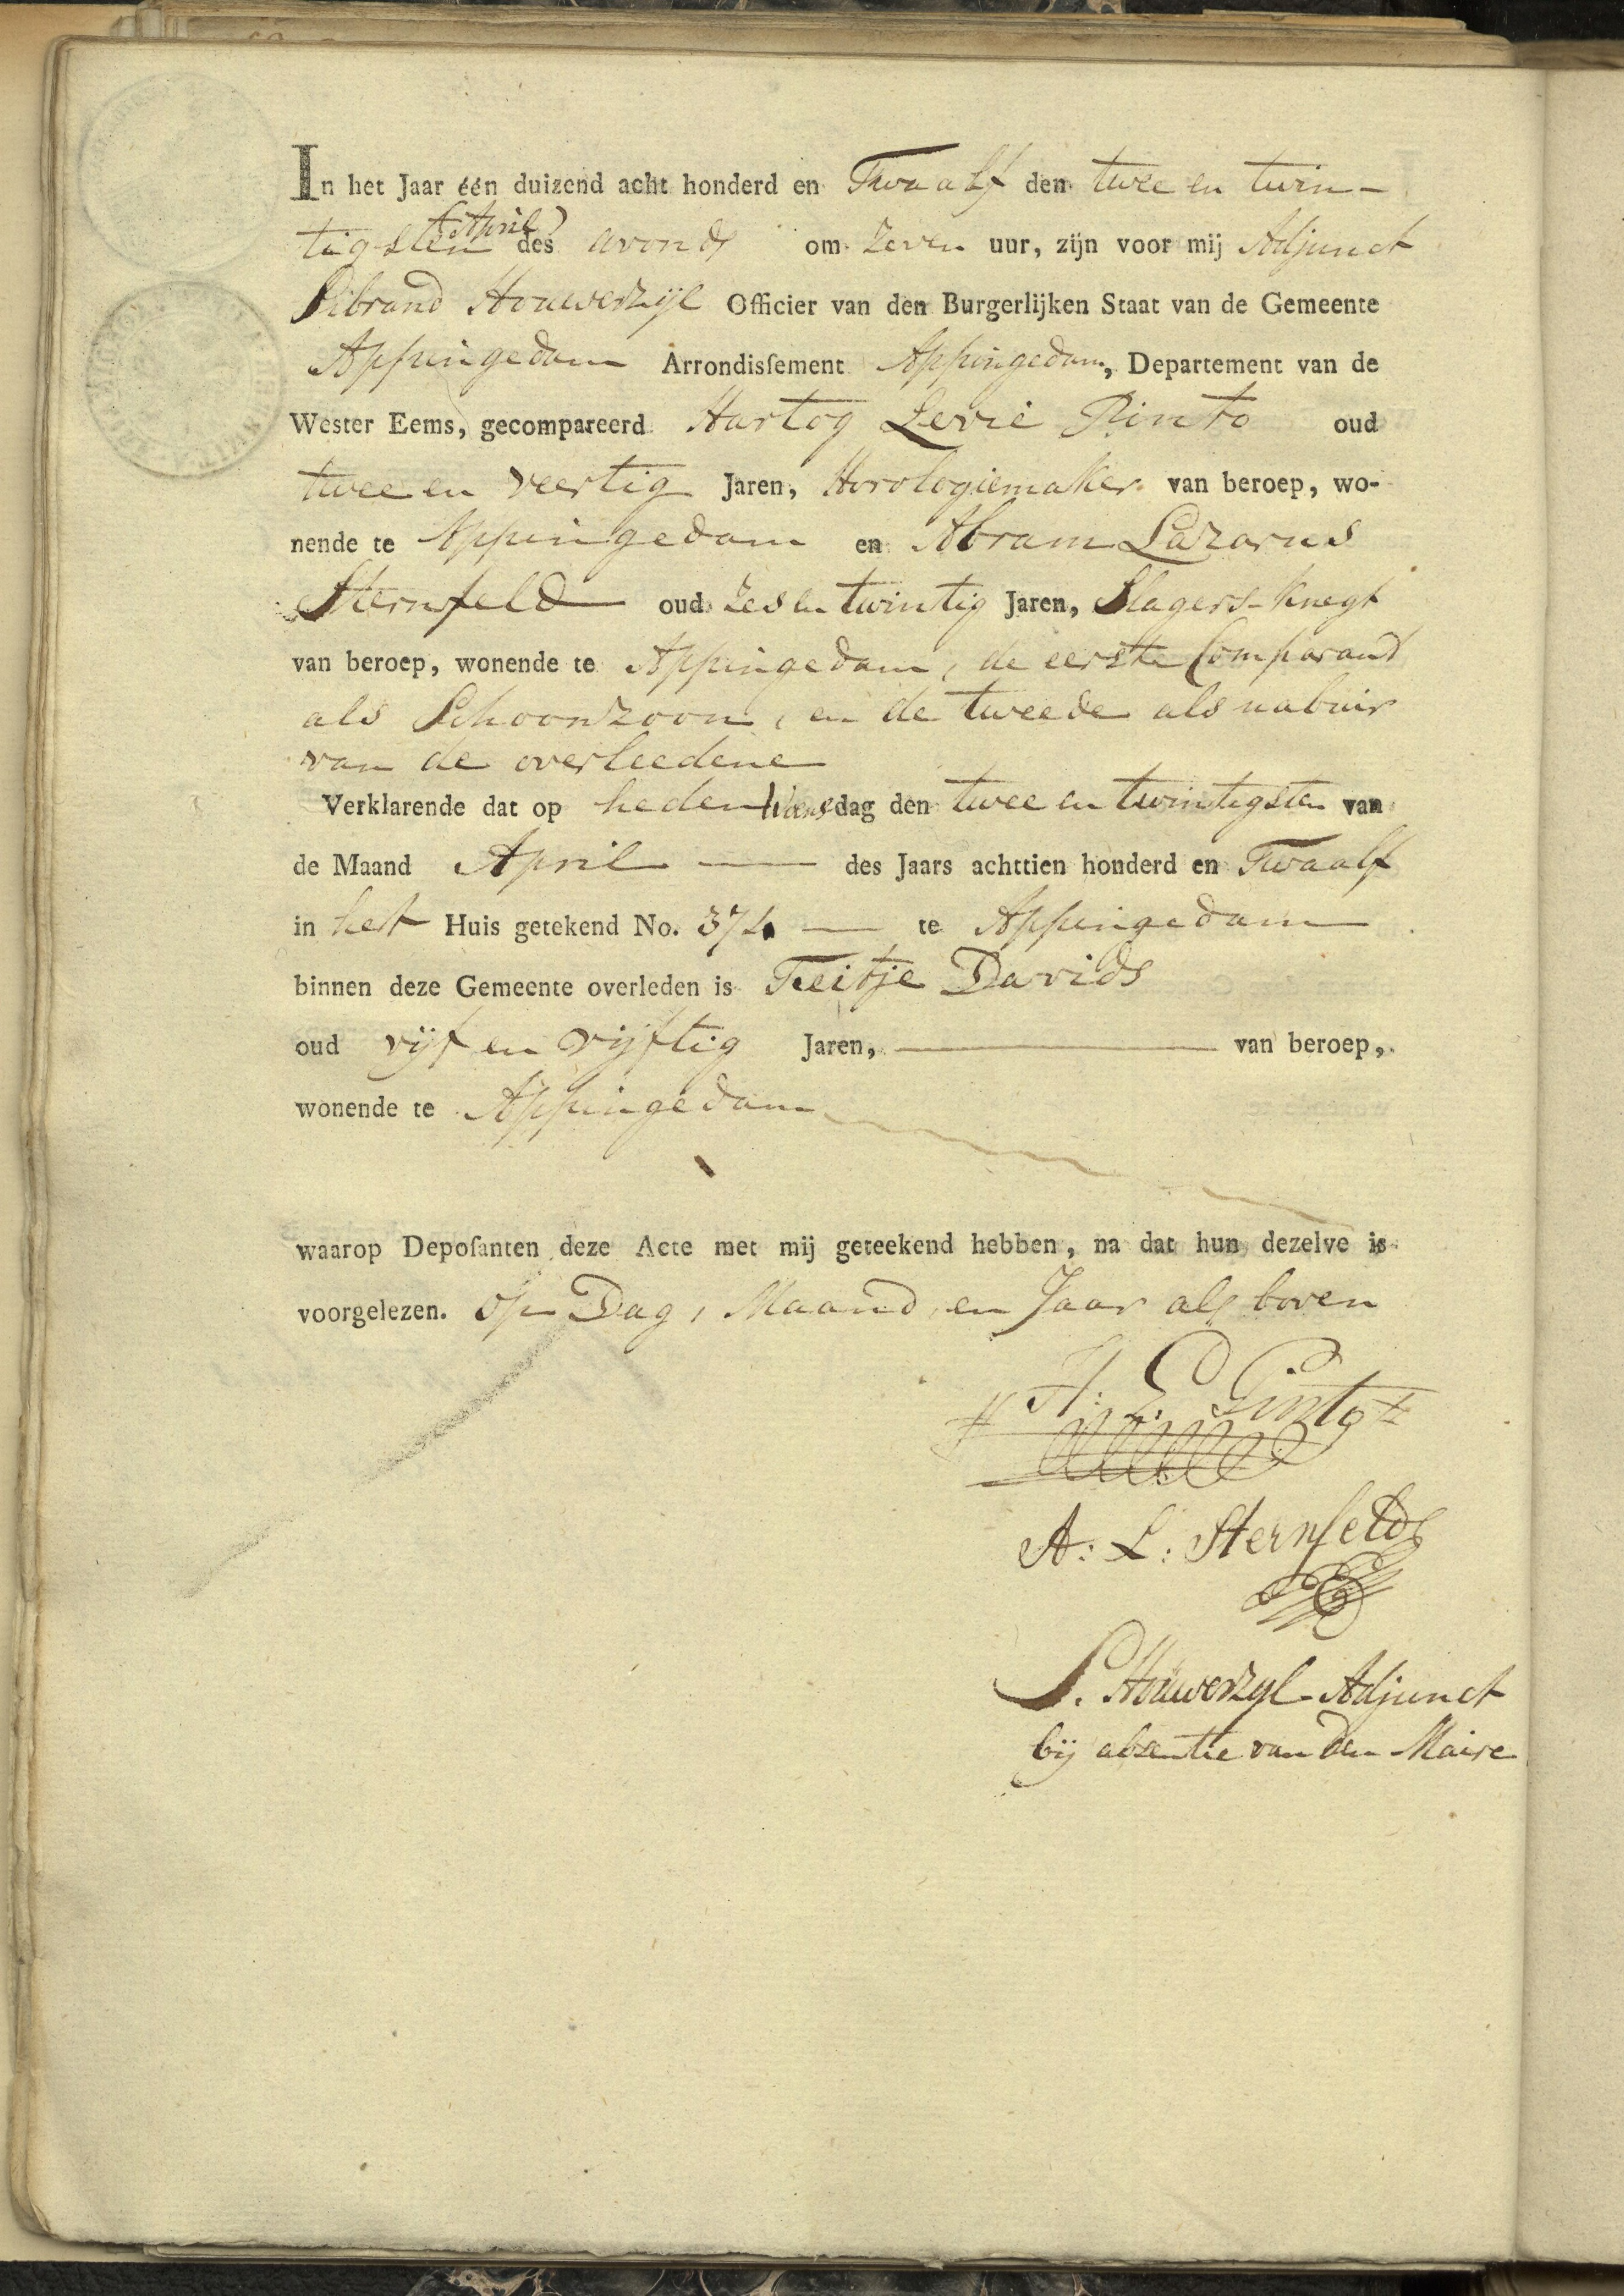 In het Jaar één duizend acht honderd en Twaalf den twee en twin-
(April)
tigsten des avonds om zeven uur, zijn voor mij Adjunct
Sibrand Houwerzijl Officier van den Burgerlijken Staat van de Gemeente
Appingedam Arrondisſement Appingedam, Departement van de
Wester Eems, gecompareerd Hartog Levie Pinto oud
twee en veertig Jaren, Horologiemaker van beroep, wo-
nende te Appingedam en Abram Lazarus
Sternfeld oud zes en twintig Jaren, Slagers-knegt
van beroep, wonende te Appingedam, de eerste Comparand
als Schoonzoon, en de tweede als nabuir
van de overleedene
Verklarende dat op heden Woensdag den twee en twintigsten van
de Maand April des Jaars achttien honderd en Twaalf
in het Huis getekend No. 374 te Appingedam
binnen deze Gemeente overleden is Feitje Davids
oud vijf en vijftig Jaren, van beroep,
wonende te Appingedam
waarop Depoſanten deze Acte met mij geteekend hebben, na dat hun dezelve is
voorgelezen. Op Dag, Maand, en Jaar als boven
H: L: Pinto
A: L: Sternfeld
S. Houwerzyl Adjunct
bij absentie van den Maire